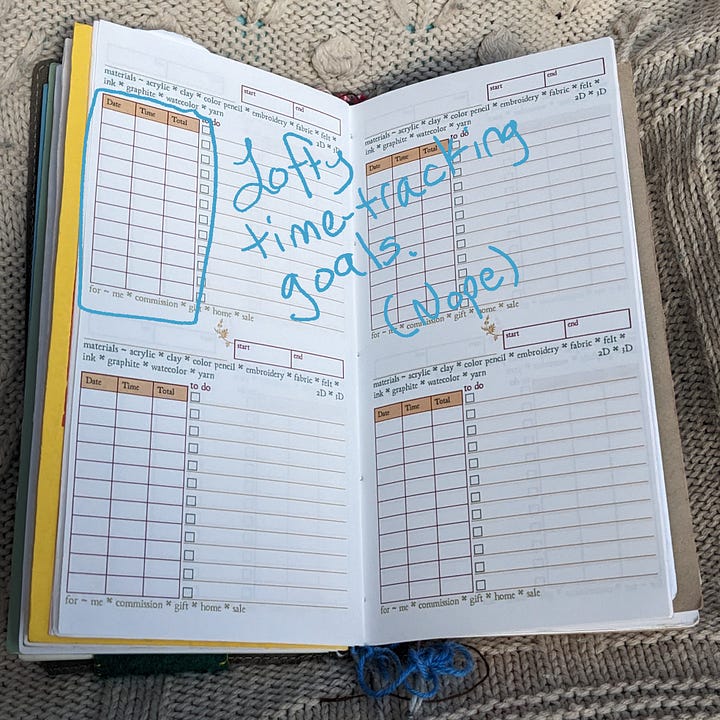 start end
materials ~ acrylic * clay * color pencil * embroidery * fabric * felt *
ink * graphite * watecolor * yarn
2D * 3D
Date Time Total to do
for ~ me * commission * gift * home * sale
start end
materials ~ acrylic * clay * color pencil * embroidery * fabric * felt *
ink * graphite * watecolor * yarn
2D * 3D
Date Time Total to do
for ~ me * commission * gift * home * sale
Lofty
time-tracking
goals.
(Nope)
start end
materials ~ acrylic * clay * color pencil * embroidery * fabric * felt *
ink * graphite * watecolor * yarn
2D * 3D
Date Time Total to do
for ~ me * commission * gift * home * sale
start end
materials ~ acrylic * clay * color pencil * embroidery * fabric * felt *
ink * graphite * watecolor * yarn
2D * 3D
Date Time Total to do
for ~ me * commission * gift * home * sale